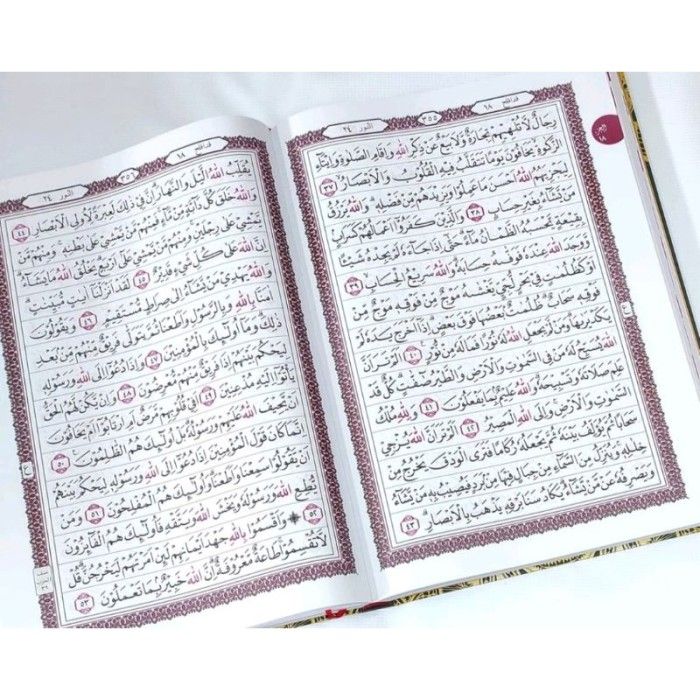 قد افلح ١٨
٣٥٥
النور ٢٤
رِجَالٌ لَّا تُلْهِيْهِمْ تِجَارَةٌ وَّلَا بَيْعٌ عَنْ ذِكْرِ اللّٰهِ وَاِقَامِ الصَّلٰوةِ وَاِيْتَاۤءِ
الزَّكٰوةِ يَخَافُوْنَ يَوْمًا تَتَقَلَّبُ فِيْهِ الْقُلُوْبُ وَالْاَبْصَارُ ٣٧
لِيَجْزِيَهُمُ اللّٰهُ اَحْسَنَ مَا عَمِلُوْا وَيَزِيْدَهُمْ مِّنْ فَضْلِهٖ وَاللّٰهُ يَرْزُقُ
مَنْ يَّشَاۤءُ بِغَيْرِ حِسَابٍ ٣٨ وَالَّذِيْنَ كَفَرُوْٓا اَعْمَالُهُمْ كَسَرَابٍ
بِقِيْعَةٍ يَّحْسَبُهُ الظَّمْاٰنُ مَاۤءً حَتّٰىٓ اِذَا جَاۤءَهٗ لَمْ يَجِدْهُ شَيْـًٔا
وَّوَجَدَ اللّٰهَ عِنْدَهٗ فَوَفّٰىهُ حِسَابَهٗ وَاللّٰهُ سَرِيْعُ الْحِسَابِ ٣٩
اَوْ كَظُلُمٰتٍ فِيْ بَحْرٍ لُّجِّيٍّ يَّغْشٰىهُ مَوْجٌ مِّنْ فَوْقِهٖ مَوْجٌ مِّنْ
فَوْقِهٖ سَحَابٌ ظُلُمٰتٌ بَعْضُهَا فَوْقَ بَعْضٍ اِذَآ اَخْرَجَ يَدَهٗ لَمْ
يَكَدْ يَرٰىهَا وَمَنْ لَّمْ يَجْعَلِ اللّٰهُ لَهٗ نُوْرًا فَمَا لَهٗ مِنْ نُّوْرٍ ٤٠ اَلَمْ تَرَ اَنَّ
اللّٰهَ يُسَبِّحُ لَهٗ مَنْ فِى السَّمٰوٰتِ وَالْاَرْضِ وَالطَّيْرُ صٰۤفّٰتٍ كُلٌّ قَدْ
عَلِمَ صَلَاتَهٗ وَتَسْبِيْحَهٗ وَاللّٰهُ عَلِيْمٌ بِمَا يَفْعَلُوْنَ ٤١ وَلِلّٰهِ مُلْكُ
السَّمٰوٰتِ وَالْاَرْضِ وَاِلَى اللّٰهِ الْمَصِيْرُ ٤٢ اَلَمْ تَرَ اَنَّ اللّٰهَ يُزْجِيْ
سَحَابًا ثُمَّ يُؤَلِّفُ بَيْنَهٗ ثُمَّ يَجْعَلُهٗ رُكَامًا فَتَرَى الْوَدْقَ يَخْرُجُ مِنْ
خِلٰلِهٖ وَيُنَزِّلُ مِنَ السَّمَاۤءِ مِنْ جِبَالٍ فِيْهَا مِنْ بَرَدٍ فَيُصِيْبُ بِهٖ مَنْ يَّشَاۤءُ
وَيَصْرِفُهٗ عَنْ مَّنْ يَّشَاۤءُ يَكَادُ سَنَا بَرْقِهٖ يَذْهَبُ بِالْاَبْصَارِ ٤٣
قد افلح ١٨
النور ٢٤
يُقَلِّبُ اللّٰهُ الَّيْلَ وَالنَّهَارَ اِنَّ فِيْ ذٰلِكَ لَعِبْرَةً لِّاُولِى الْاَبْصَارِ ٤٤
وَاللّٰهُ خَلَقَ كُلَّ دَاۤبَّةٍ مِّنْ مَّاۤءٍ فَمِنْهُمْ مَّنْ يَّمْشِيْ عَلٰى بَطْنِهٖ وَمِنْهُمْ مَّنْ
يَّمْشِيْ عَلٰى رِجْلَيْنِ وَمِنْهُمْ مَّنْ يَّمْشِيْ عَلٰٓى اَرْبَعٍ يَخْلُقُ اللّٰهُ مَا يَشَاۤءُ
اِنَّ اللّٰهَ عَلٰى كُلِّ شَيْءٍ قَدِيْرٌ ٤٥ لَقَدْ اَنْزَلْنَآ اٰيٰتٍ مُّبَيِّنٰتٍ
وَاللّٰهُ يَهْدِيْ مَنْ يَّشَاۤءُ اِلٰى صِرَاطٍ مُّسْتَقِيْمٍ ٤٦ وَيَقُوْلُوْنَ
اٰمَنَّا بِاللّٰهِ وَبِالرَّسُوْلِ وَاَطَعْنَا ثُمَّ يَتَوَلّٰى فَرِيْقٌ مِّنْهُمْ مِّنْ بَعْدِ
ذٰلِكَ وَمَآ اُولٰۤىِٕكَ بِالْمُؤْمِنِيْنَ ٤٧ وَاِذَا دُعُوْٓا اِلَى اللّٰهِ وَرَسُوْلِهٖ
لِيَحْكُمَ بَيْنَهُمْ اِذَا فَرِيْقٌ مِّنْهُمْ مُّعْرِضُوْنَ ٤٨ وَاِنْ يَّكُنْ لَّهُمُ الْحَقُّ
يَأْتُوْٓا اِلَيْهِ مُذْعِنِيْنَ ٤٩ اَفِيْ قُلُوْبِهِمْ مَّرَضٌ اَمِ ارْتَابُوْٓا اَمْ يَخَافُوْنَ
اَنْ يَّحِيْفَ اللّٰهُ عَلَيْهِمْ وَرَسُوْلُهٗ بَلْ اُولٰۤىِٕكَ هُمُ الظّٰلِمُوْنَ ٥٠
اِنَّمَا كَانَ قَوْلَ الْمُؤْمِنِيْنَ اِذَا دُعُوْٓا اِلَى اللّٰهِ وَرَسُوْلِهٖ لِيَحْكُمَ بَيْنَهُمْ
اَنْ يَّقُوْلُوْا سَمِعْنَا وَاَطَعْنَا وَاُولٰۤىِٕكَ هُمُ الْمُفْلِحُوْنَ ٥١ وَمَنْ
يُّطِعِ اللّٰهَ وَرَسُوْلَهٗ وَيَخْشَ اللّٰهَ وَيَتَّقْهِ فَاُولٰۤىِٕكَ هُمُ الْفَاۤىِٕزُوْنَ
٥٢ وَاَقْسَمُوْا بِاللّٰهِ جَهْدَ اَيْمَانِهِمْ لَىِٕنْ اَمَرْتَهُمْ لَيَخْرُجُنَّ قُلْ
لَّا تُقْسِمُوْا طَاعَةٌ مَّعْرُوْفَةٌ اِنَّ اللّٰهَ خَبِيْرٌ بِمَا تَعْمَلُوْنَ ٥٣